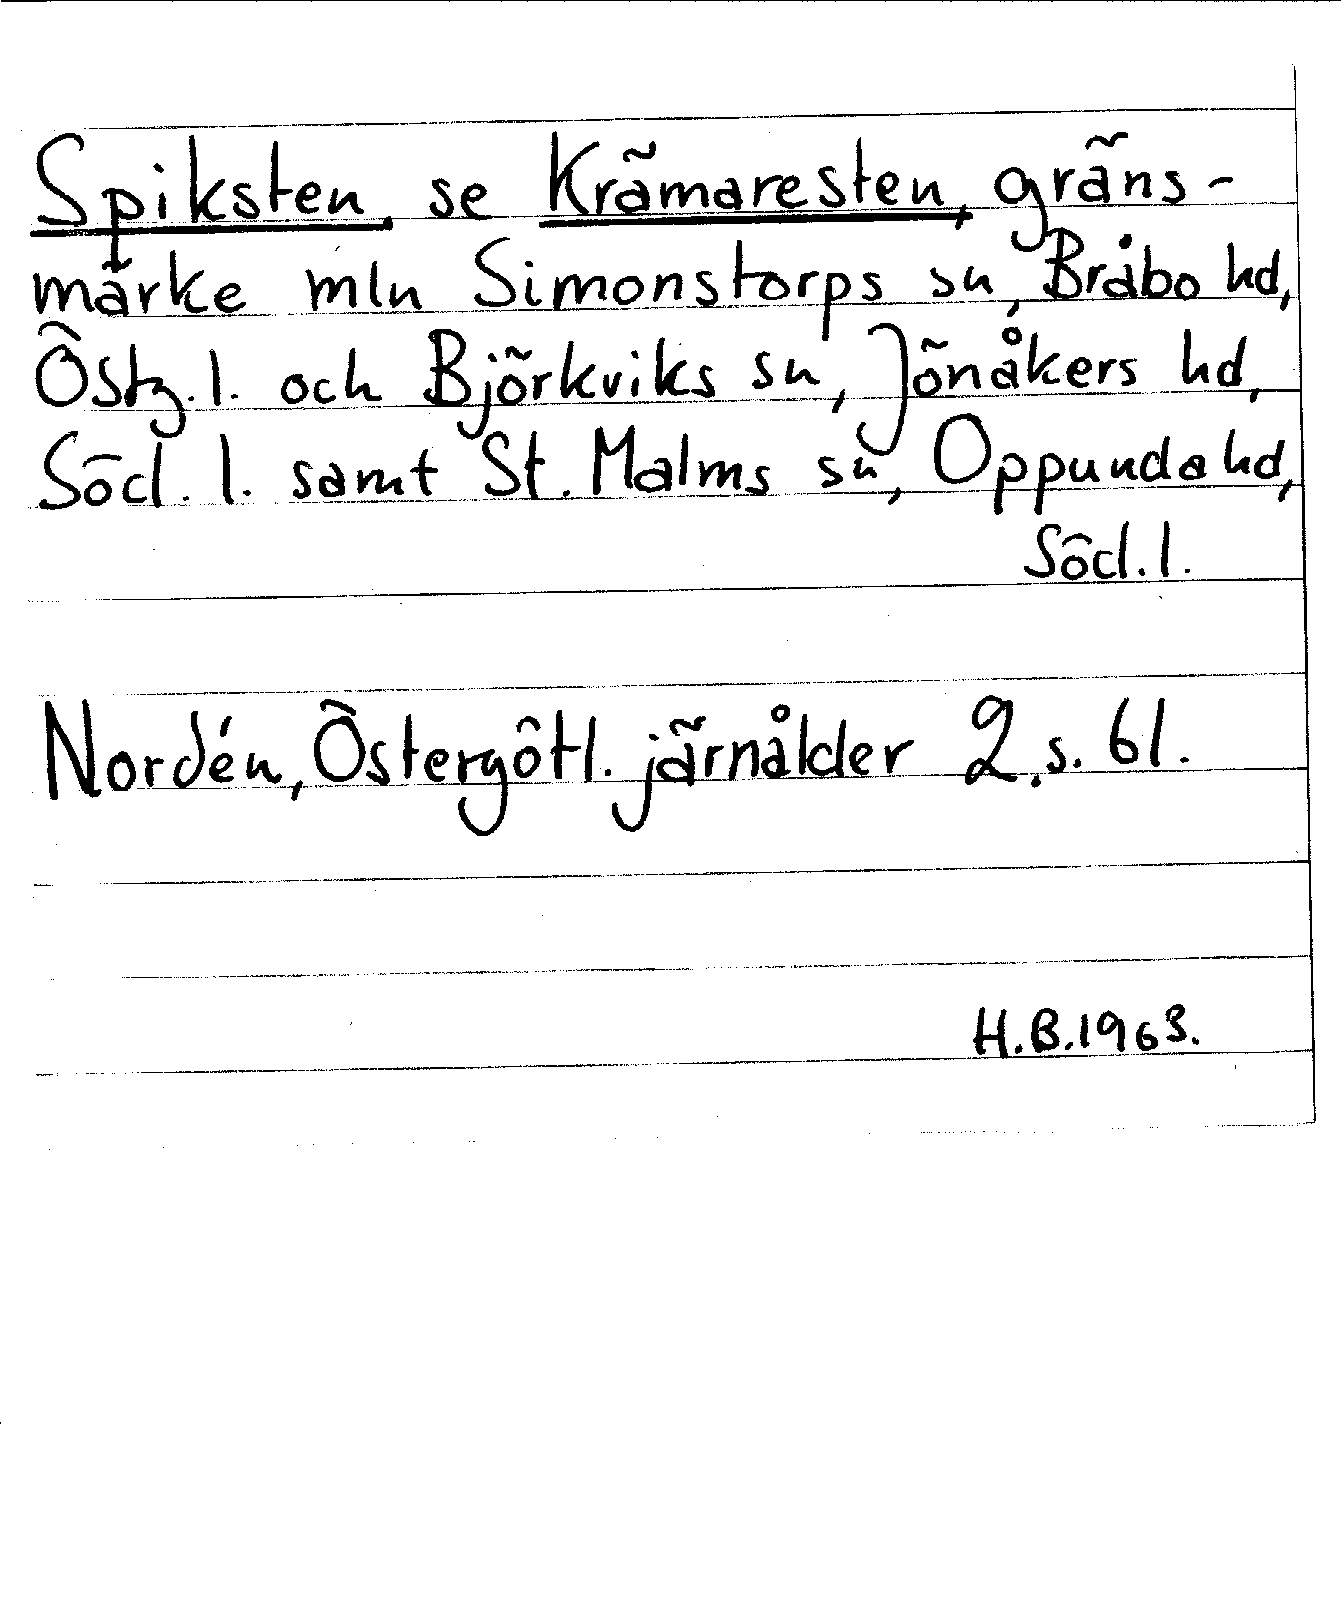 Spiksten, se Krämaresten, gräns-
märke mln Simonstorps sn, Bråbo hd,
Östg. l. och Björkviks sn, Jönåkers hd,
Söd. l. samt St. Malms sn, Oppunda hd,
Söd. l.
Nordén, Östergötl. järnålder 2. s. 61.
H.B. 1963.